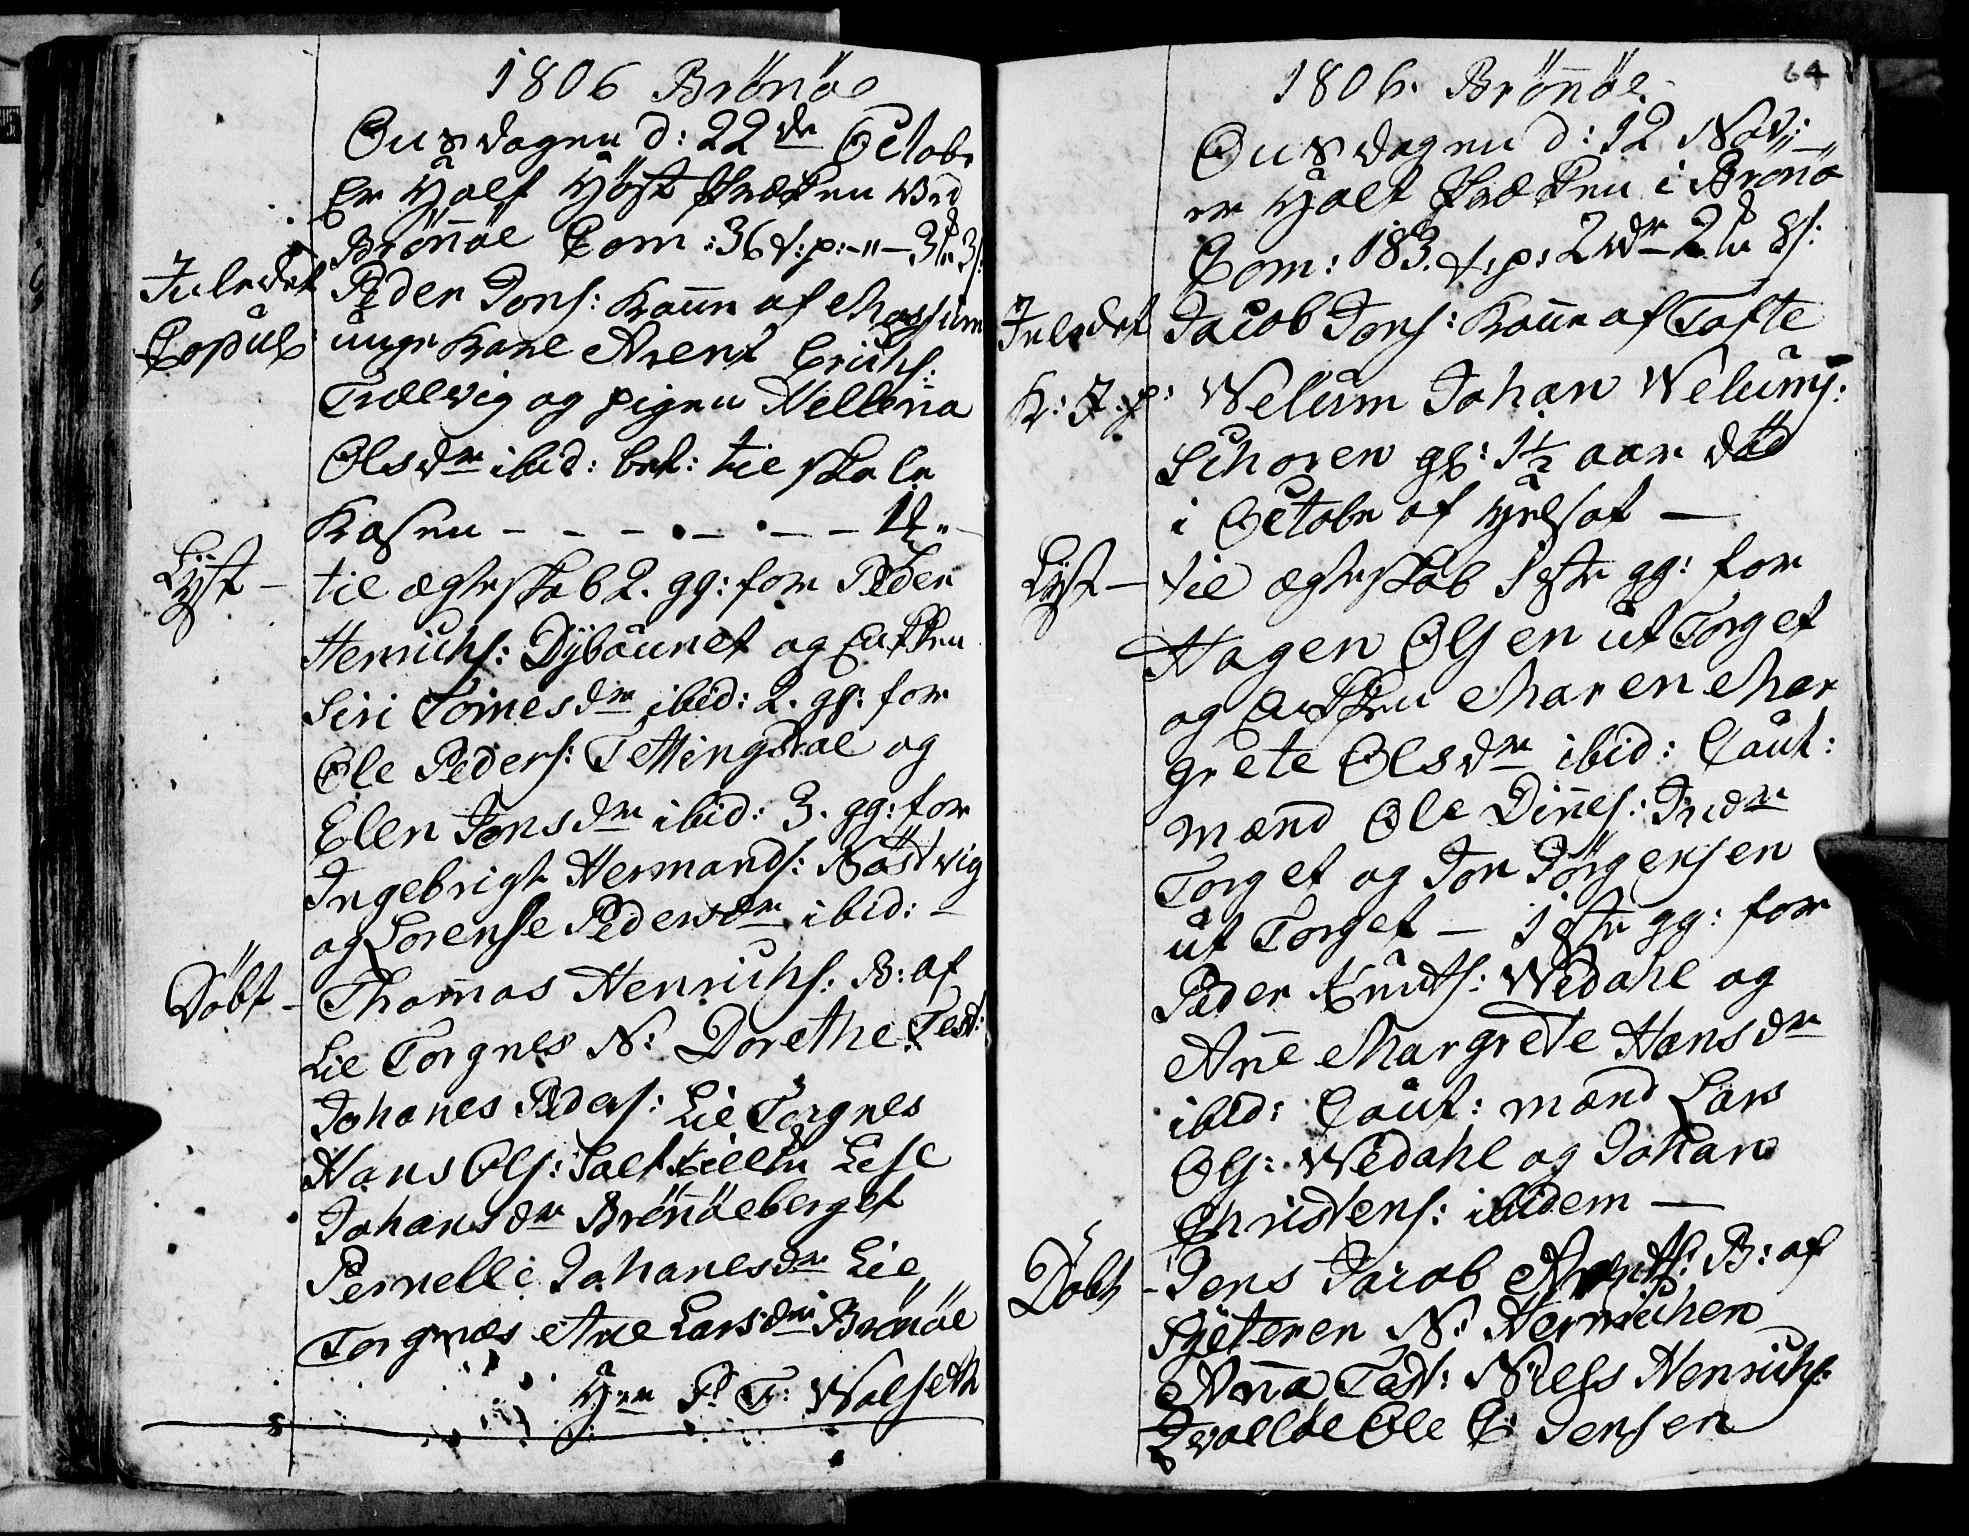 1806 Brönöe
Onsdagen d: 22de Octobr
Er Holt Höst Præken ved
Brönöe Com: 36 f:p:-"-3
Inledet Peder Jons: Kone af
Copul: unge Karl Arent Erichs:
Trælvig og pigen Hellena
Olsdr ibid: bet: til skole
Kasen - - - - - - - 1
Lyst - til ægteskab 2. gg: for Peder
Henrichs: Dybaunet og Enken
Siri Tomesdr ibid: 2. gg: for
Ole Peders: Tettingdal og
Elen Jonsdr ibid: 3. gg: for
Ingebrigt Hermands: Nöstvig
og Lorense Pedersdr ibid: -
Döbt - Thomas Henrichs: B: af
Lie Torgnes N: Dorethe Test:
Johanes Peders: Lie Torgnes
Hans Ols: Lise
Johansdr Brönöeberget
Pernelle Johanesdr Lie
Torgnæs Ane Larsdr Brönöe
Hr P: T: Wolseth
64
1806. Brönöe
Onsdagen d: 12 Nov:
er Holt Præken i Brönö
Com: 183. f:p: 2
Inledet Jacob Jons: Kone af Tofte
K: J: p: Welum Johan Welums:
Schoren gl: 1½ aar död
i Octobr af
Lyst - til ægteskab 1ste gg: for
Hagen Olsen ut Torget
og Enken Maren Mar
grete Olsdr ibid: Caut:
mænd Ole Dines: Indr
Torget og Jon Jörgensen
ut Torget - 1ste gg: for
Peder Knuts: Wedahl og
Ane Margrete Hansdr
ibid: Caut: mænd Lars
Ols: Wedahl og Johan
Christens: ibidem -
Döbt - Jens Jacob Arents: B: af
N:
Anna Test: Niels Henrichs:
Ole C: Jensen